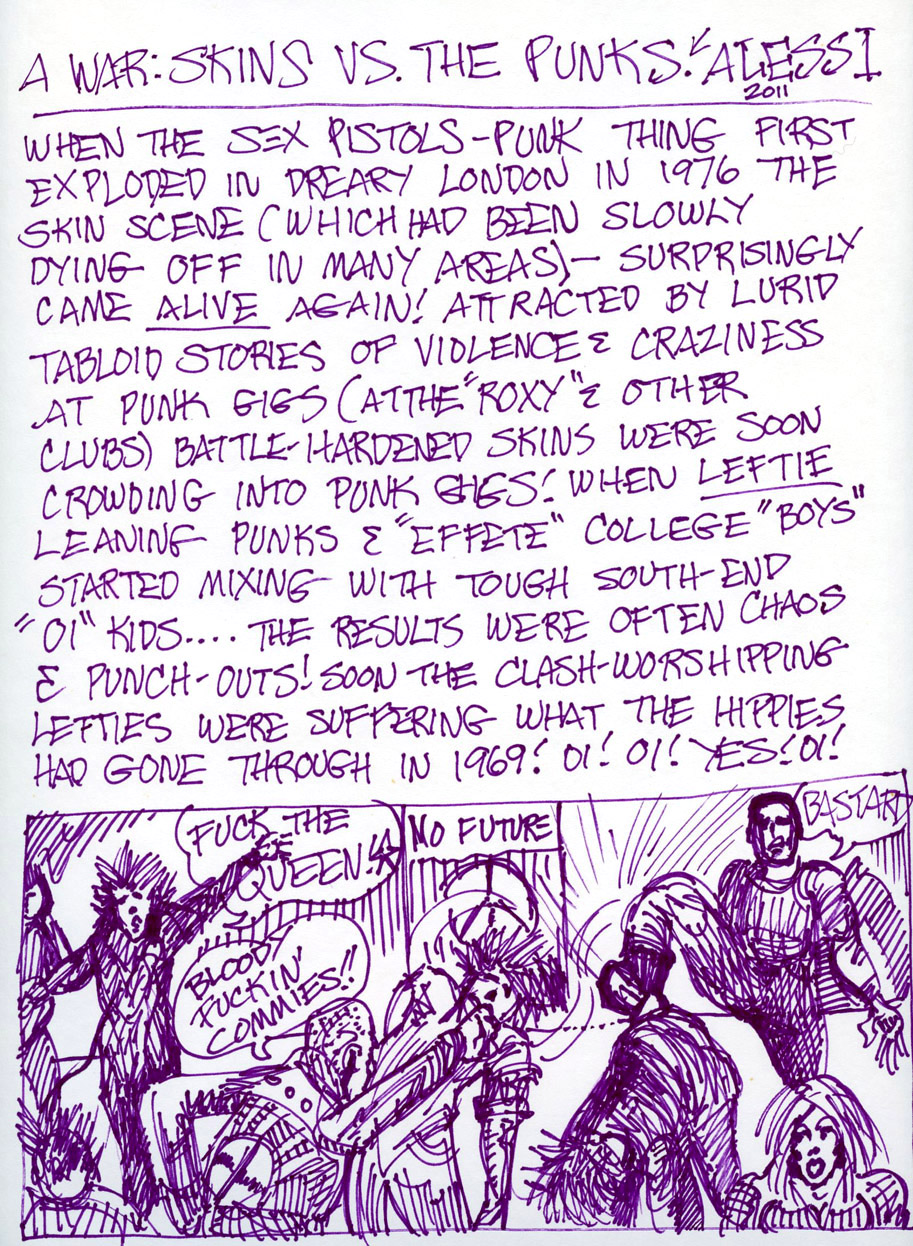 A WAR: SKINS VS. THE PUNKS! ALESSI
2011
WHEN THE SEX PISTOLS-PUNK THING FIRST
EXPLODED IN DREARY LONDON IN 1976 THE
SKIN SCENE (WHICH HAD BEEN SLOWLY
DYING OFF IN MANY AREAS)- SURPRISINGLY
CAME ALIVE AGAIN! ATTRACTED BY LURID
TABLOID STORIES OF VIOLENCE & CRAZINESS
AT PUNK GIGS (AT THE "ROXY" & OTHER
CLUBS) BATTLE-HARDENED SKINS WERE SOON
CROWDING INTO PUNK GIGS! WHEN LEFTIE
LEANING PUNKS & "EFFETE" COLLEGE "BOYS"
STARTED MIXING WITH TOUGH SOUTH-END
"OI" KIDS.... THE RESULTS WERE OFTEN CHAOS
& PUNCH-OUTS! SOON THE CLASH-WORSHIPPING
LEFTIES WERE SUFFERING WHAT THE HIPPIES
HAD GONE THROUGH IN 1969! OI! OI! YES! OI!
FUCK THE
QUEEN!!
BLOODY
FUCKIN'
COMMIES!!
NO FUTURE
BASTARD